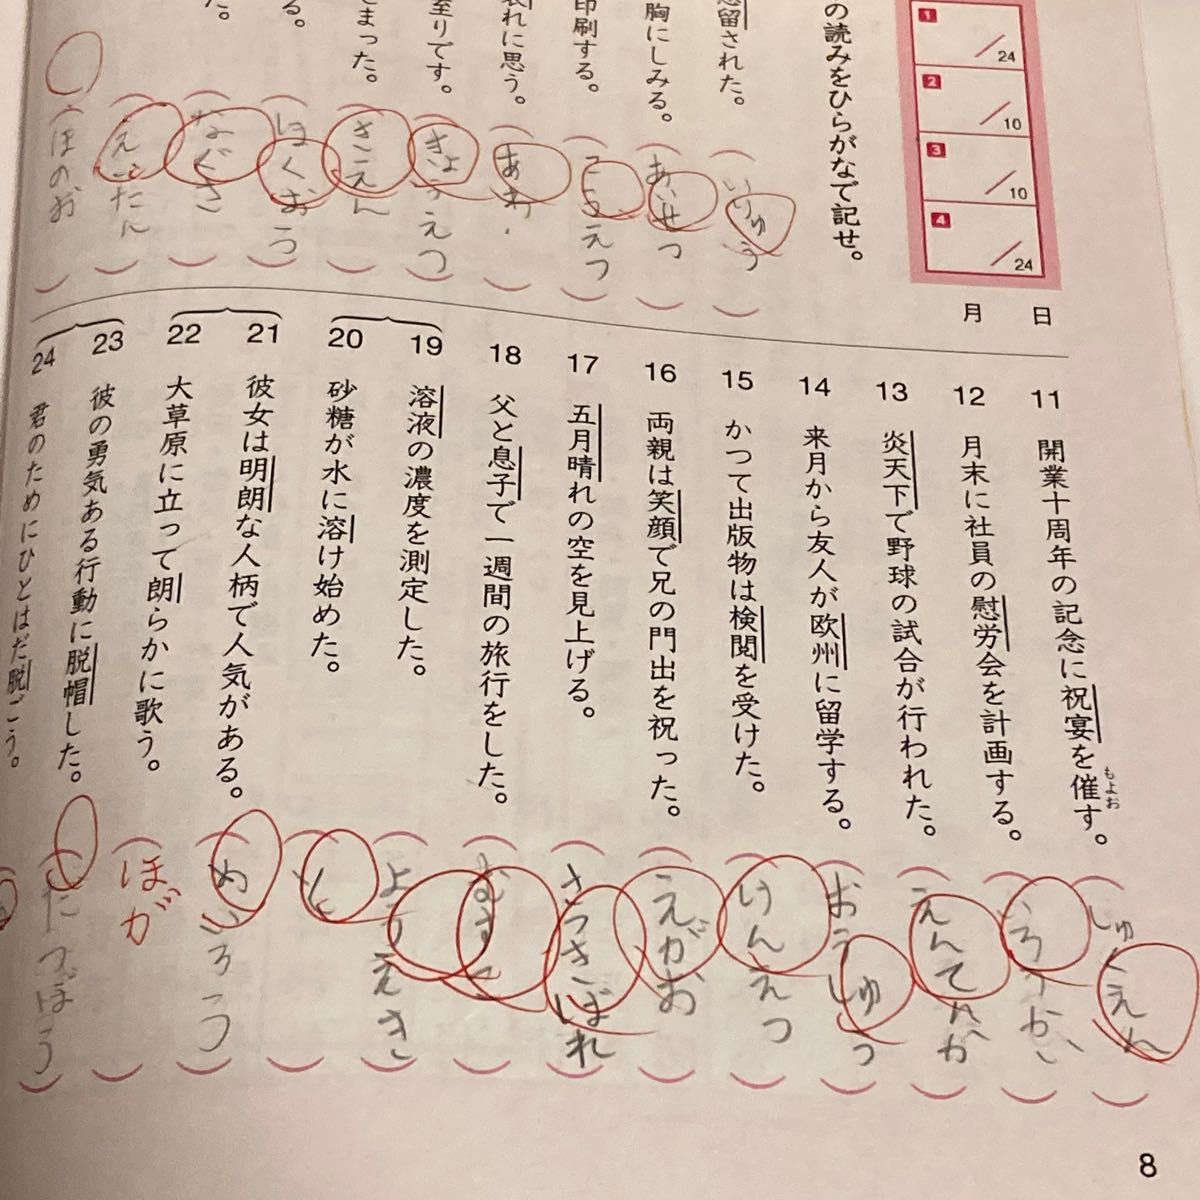 の読みをひらがなで記せ。
1
/24
2
/10
3
/10
4
/24
月
日
留された。
胸にしみる。
印刷する。
れに思う。
至りです。
まった。
る。
た。
いりゅう
あいせつ
あわ
きょうえつ
さえん
ほくおう
なぐさ
えんたん
ほのお
11 開業十周年の記念に祝宴を催す。
もよお
12 月末に社員の慰労会を計画する。
13 炎天下で野球の試合が行われた。
14 来月から友人が欧州に留学する。
15 かつて出版物は検閲を受けた。
16 両親は笑顔で兄の門出を祝った。
17 五月晴れの空を見上げる。
18 父と息子で一週間の旅行をした。
19 溶液の濃度を測定した。
20 砂糖が水に溶け始めた。
21 彼女は明朗な人柄で人気がある。
22 大草原に立って朗らかに歌う。
23 彼の勇気ある行動に脱帽した。
24 君のためにひとはだ脱ごう。
しゅくえん
いろうかい
えんてんか
おうしゅう
けんえつ
えがお
さつきばれ
むすこ
ようえき
と
めいろう
ほが
だつぼう
8